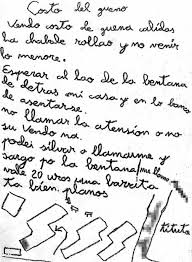 Costo del gueno
Vendo costo de guena calidas
la chabale rollao y no venir
lo menore.
Esperar al lao de la bentana
de detras mi casa y en lo banco
de asentarse.
no llamar la atension o no
su vendo na.
podei silvar o llamarme y
sargo po la bentana
vale 20 uros una barreita
ta bien planos
titula